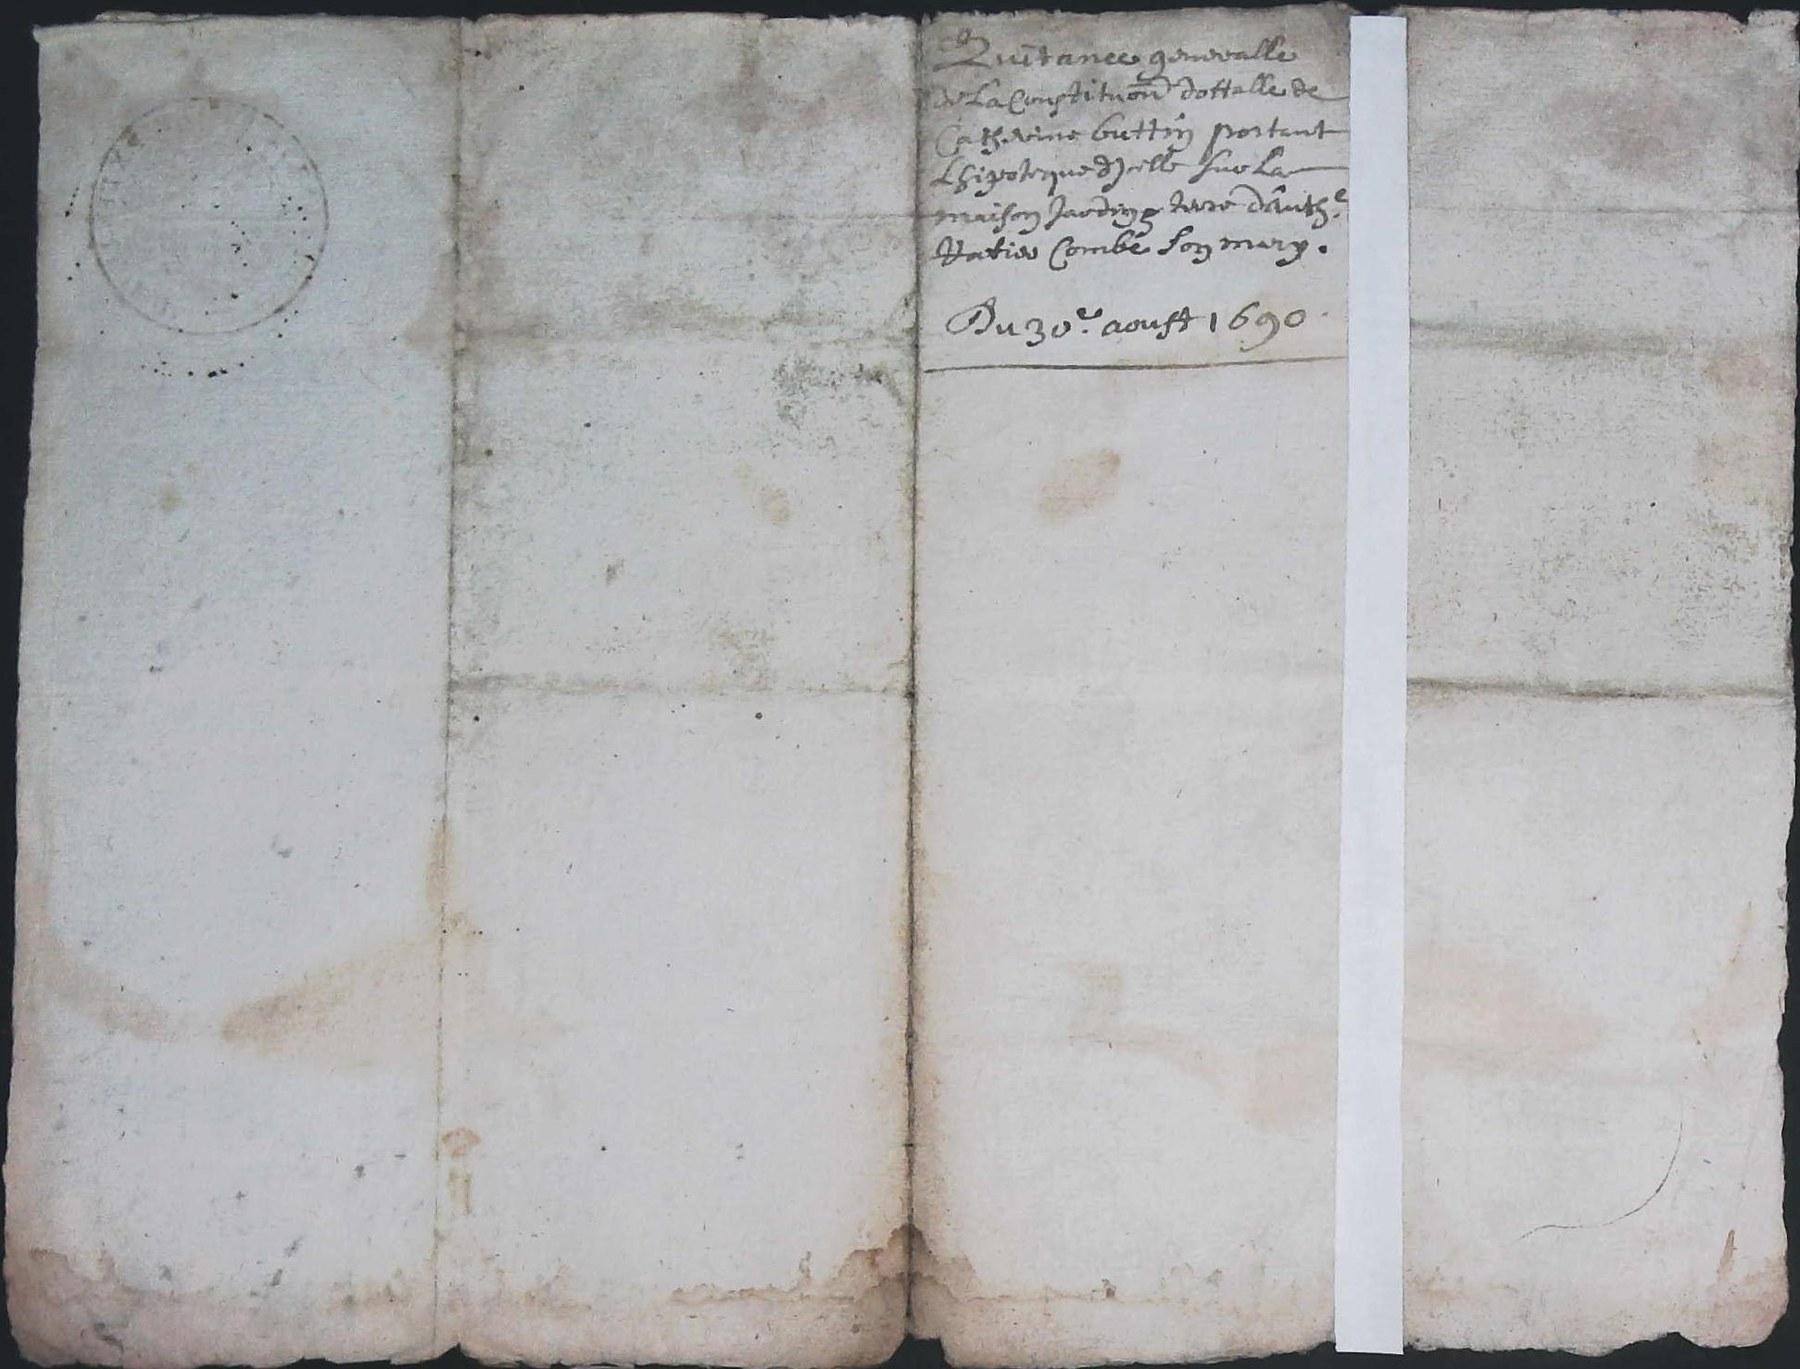 Quittance generalle
de La Constituōn dottalle de
Catherine buttin portant
Lhipoteque d'jcelle sur La
maison Jardin & terre d'Anthe
Ratier Combe son mary.
Du 30e. aoust 1690